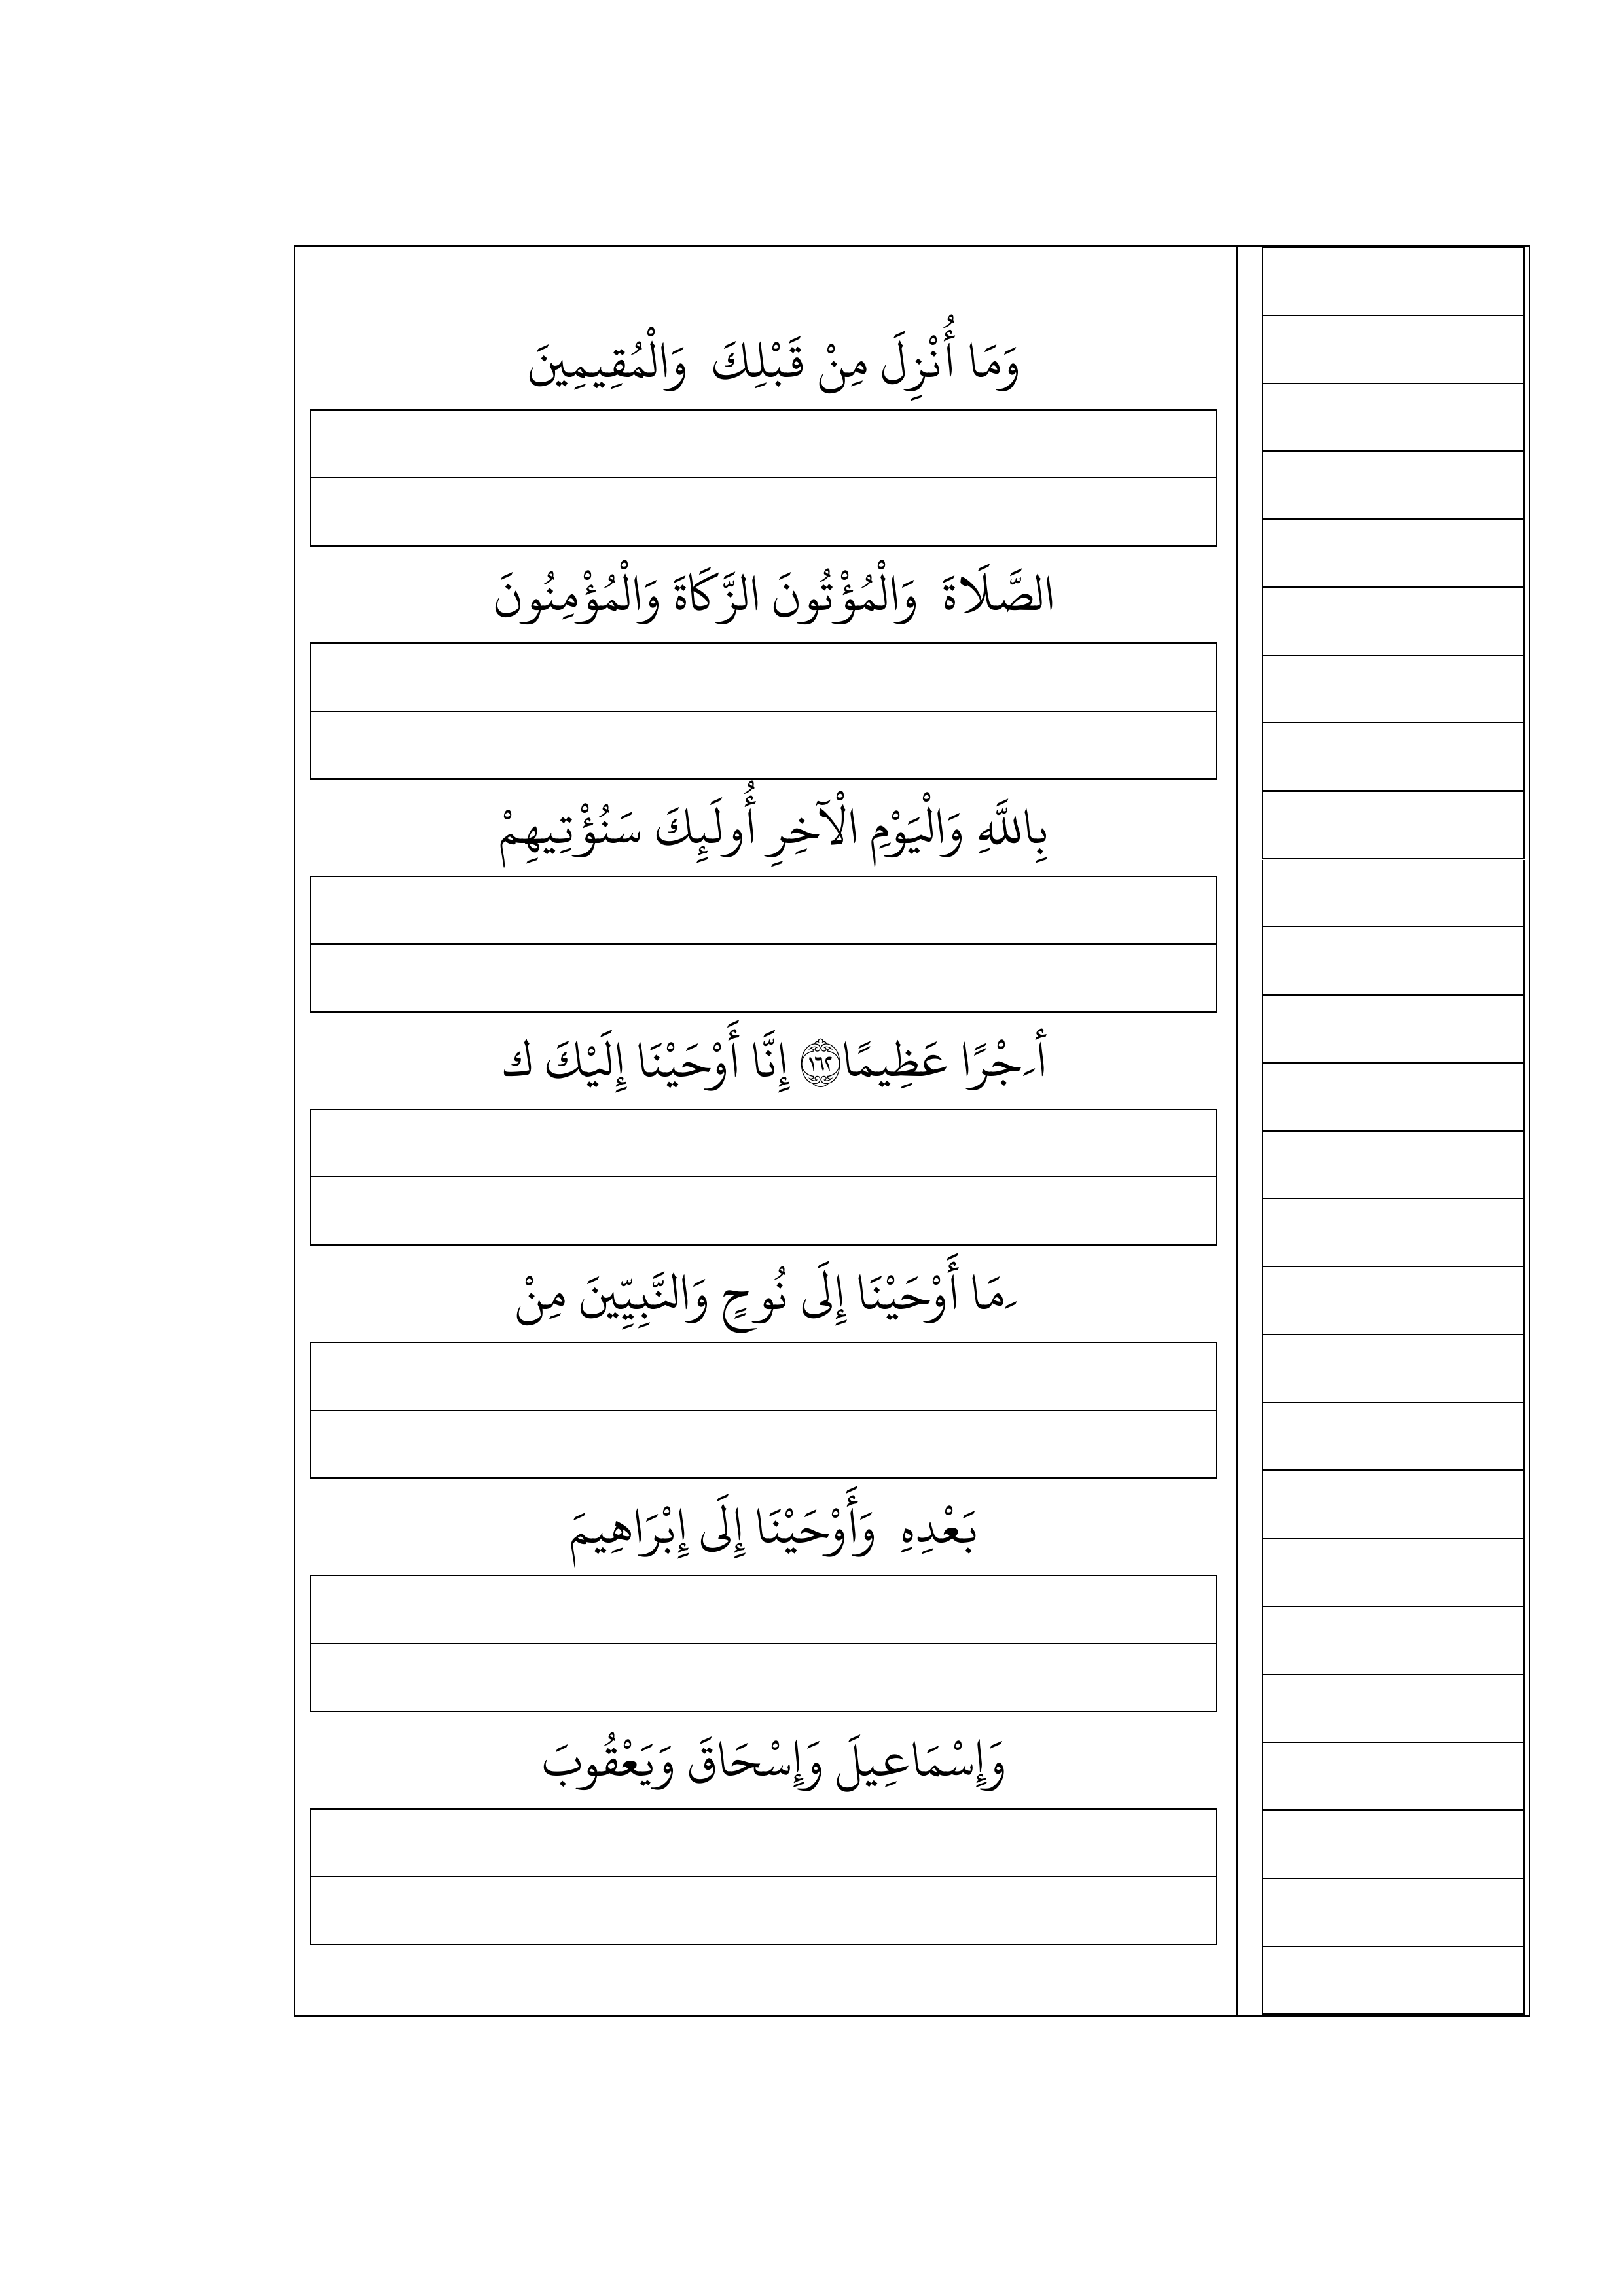 وَمَا أُنْزِلَ مِنْ قَبْلِكَ وَالْمُقِيمِينَ
الصَّلَاةَ وَالْمُؤْتُونَ الزَّكَاةَ وَالْمُؤْمِنُونَ
بِاللَّهِ وَالْيَوْمِ الْآخِرِ أُولَٰئِكَ سَنُؤْتِيهِمْ
أَجْرًا عَظِيمًا ١٦٢ إِنَّا أَوْحَيْنَا إِلَيْكَ ك
َمَا أَوْحَيْنَا إِلَى نُوحٍ وَالنَّبِيِّينَ مِنْ
بَعْدِهِ وَأَوْحَيْنَا إِلَى إِبْرَاهِيمَ
وَإِسْمَاعِيلَ وَإِسْحَاقَ وَيَعْقُوبَ